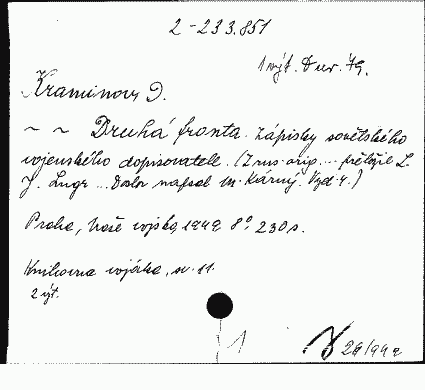 2-233.851
Kraminov D.
~ ~ Druhá fronta. Zápisky sovětského
vojenského dopisovatele. (Z rus. orig. ... přeložil L.
J. Lugr ... Doslov napsal M. Kárný. Vyd. 4.)
Praha, Naše vojsko, 1949 8° 230 s.
Knihovna vojáka, sv. 11.
2 výt.
1